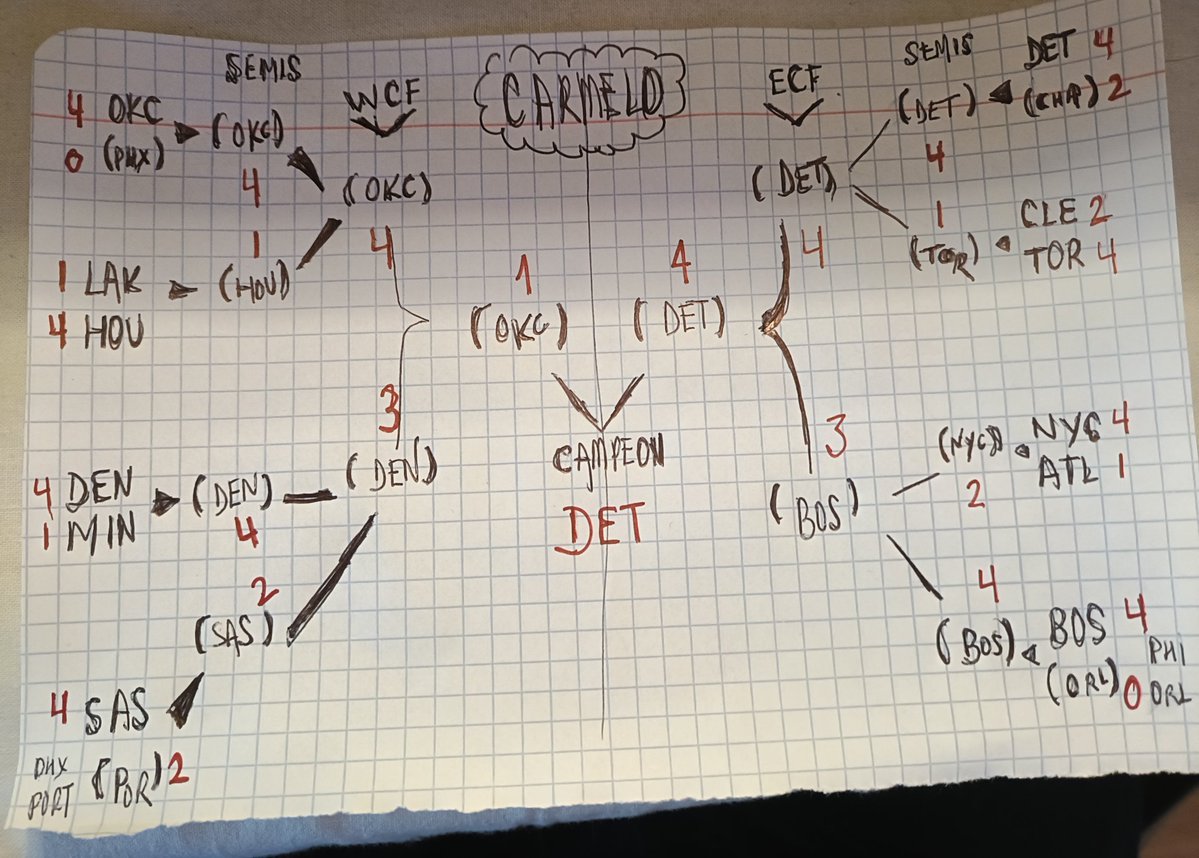 CARMELO
SEMIS
WCF
4 OKC
0 (PHX)
(OKC)
4
1
(HOU)
1 LAK
4 HOU
(OKC)
4
3
(DEN)
4 DEN
1 MIN
(DEN)
4
2
(SAS)
4 SAS
PHX
PORT
(POR) 2
1
(OKC)
4
(DET)
CAMPEON
DET
ECF
SEMIS
DET 4
(CHA) 2
(DET)
4
1
(TOR)
CLE 2
TOR 4
(DET)
4
3
(BOS)
NYC 4
ATL 1
(NYC)
2
4
(BOS)
BOS 4
(ORL) 0
PHI
ORL